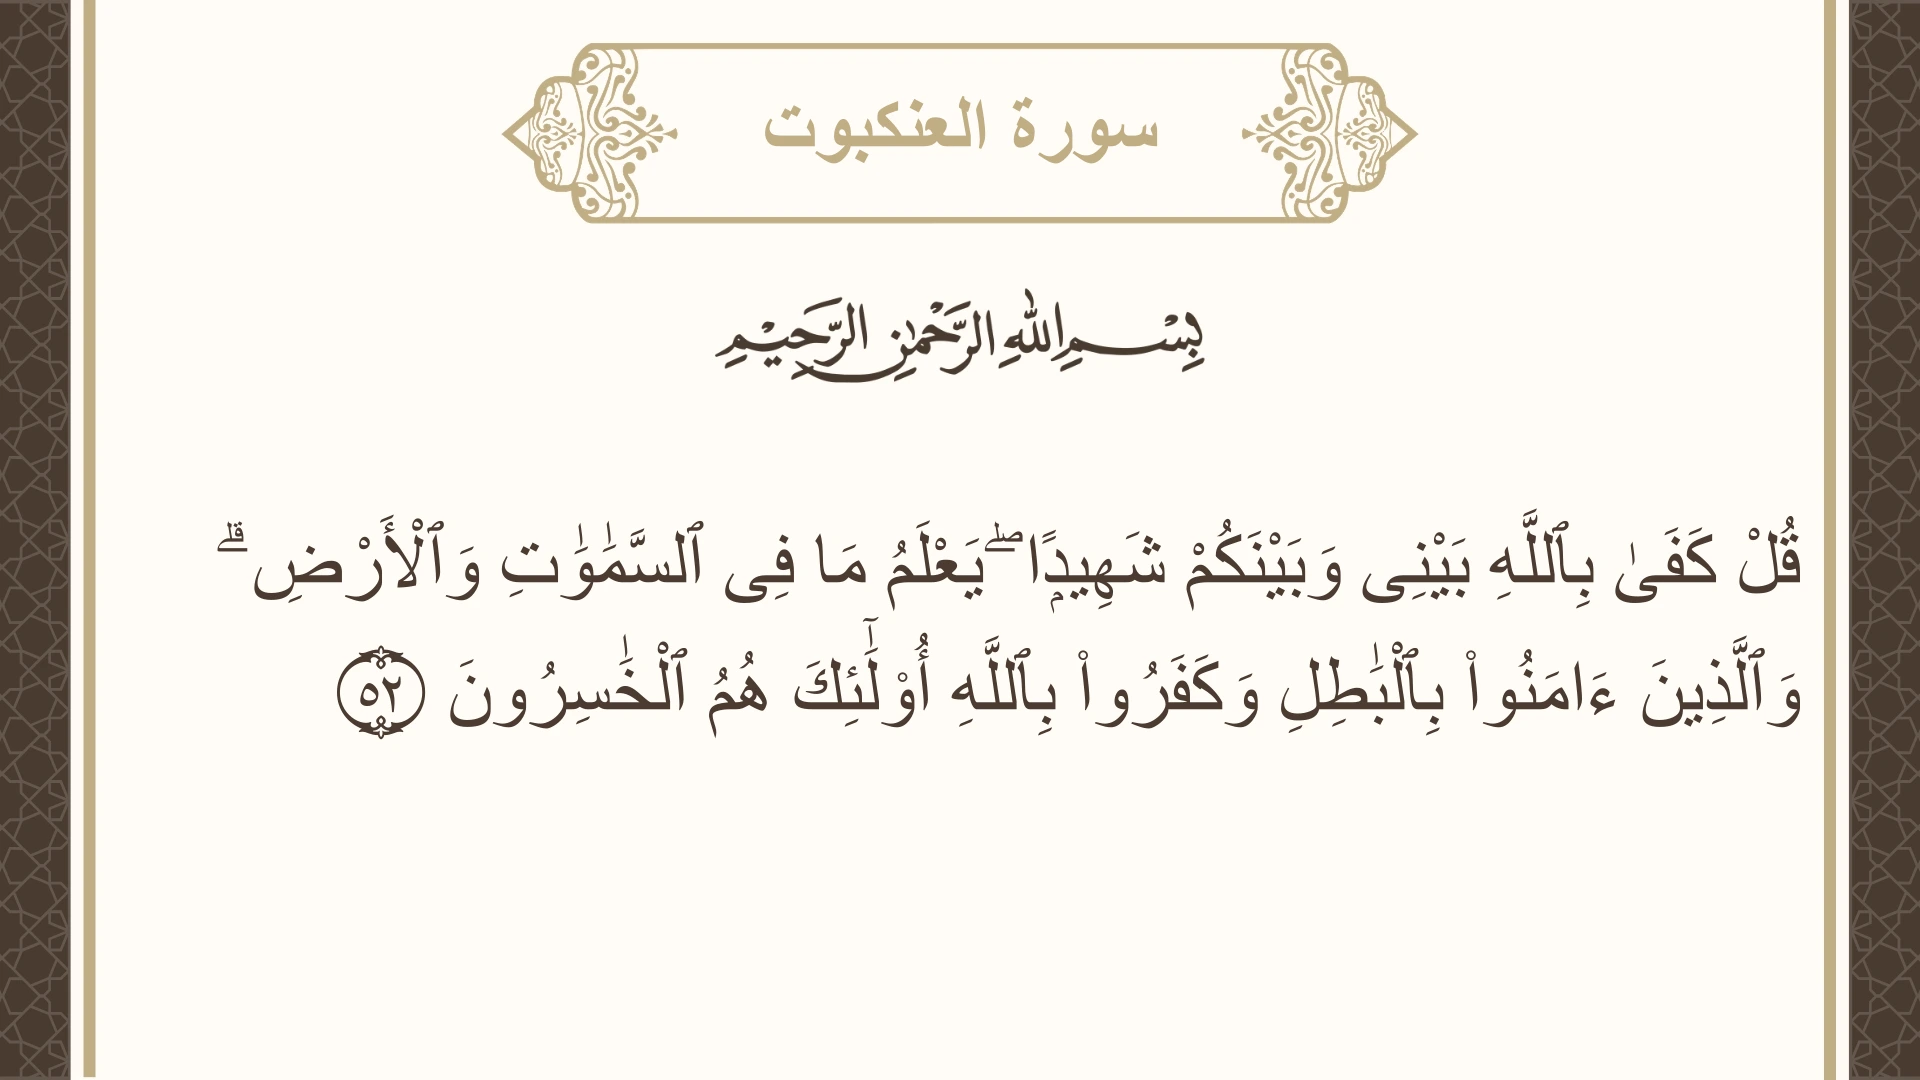 سورة العنكبوت
بِسْمِ اللهِ الرَّحْمٰنِ الرَّحِيْمِ
قُلْ كَفَىٰ بِٱللَّهِ بَيْنِى وَبَيْنَكُمْ شَهِيدًۭا ۖ يَعْلَمُ مَا فِى ٱلسَّمَـٰوَٰتِ وَٱلْأَرْضِ ۗ
وَٱلَّذِينَ ءَامَنُوا۟ بِٱلْبَـٰطِلِ وَكَفَرُوا۟ بِٱللَّهِ أُو۟لَـٰٓئِكَ هُمُ ٱلْخَـٰسِرُونَ ٥٢